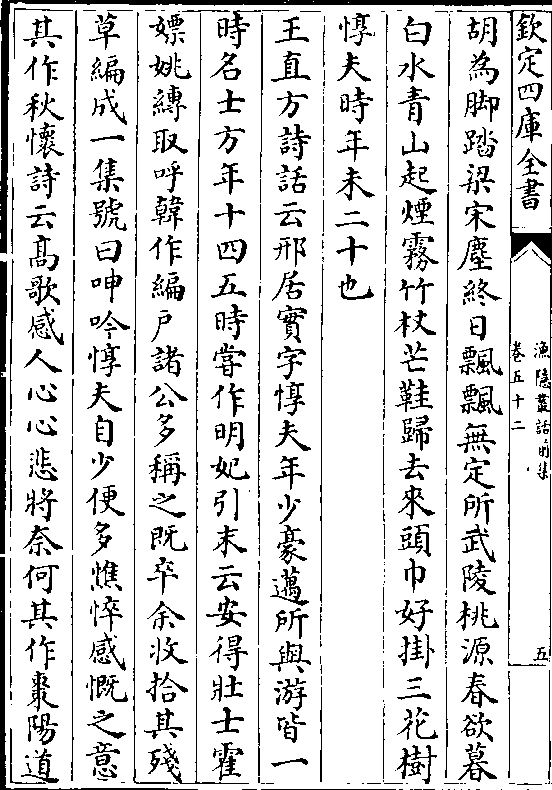 欽定四庫全書
漁隱叢話前集
卷五十二
五
胡為脚踏梁宋塵終日飄飄無定所武陵桃源春欲暮
白水青山起煙霧竹杖芒鞋歸去來頭巾好掛三花樹
惇夫時年未二十也
王直方詩話云邢居實字惇夫年少豪邁所與游皆一
時名士方年十四五時嘗作明妃引末云安得壯士霍
嫖姚縛取呼韓作編戸諸公多稱之既卒余收拾其殘
草編成一集號曰呻吟惇夫自少便多憔悴感慨之意
其作秋懷詩云髙歌感人心心悲將奈何其作棗陽道